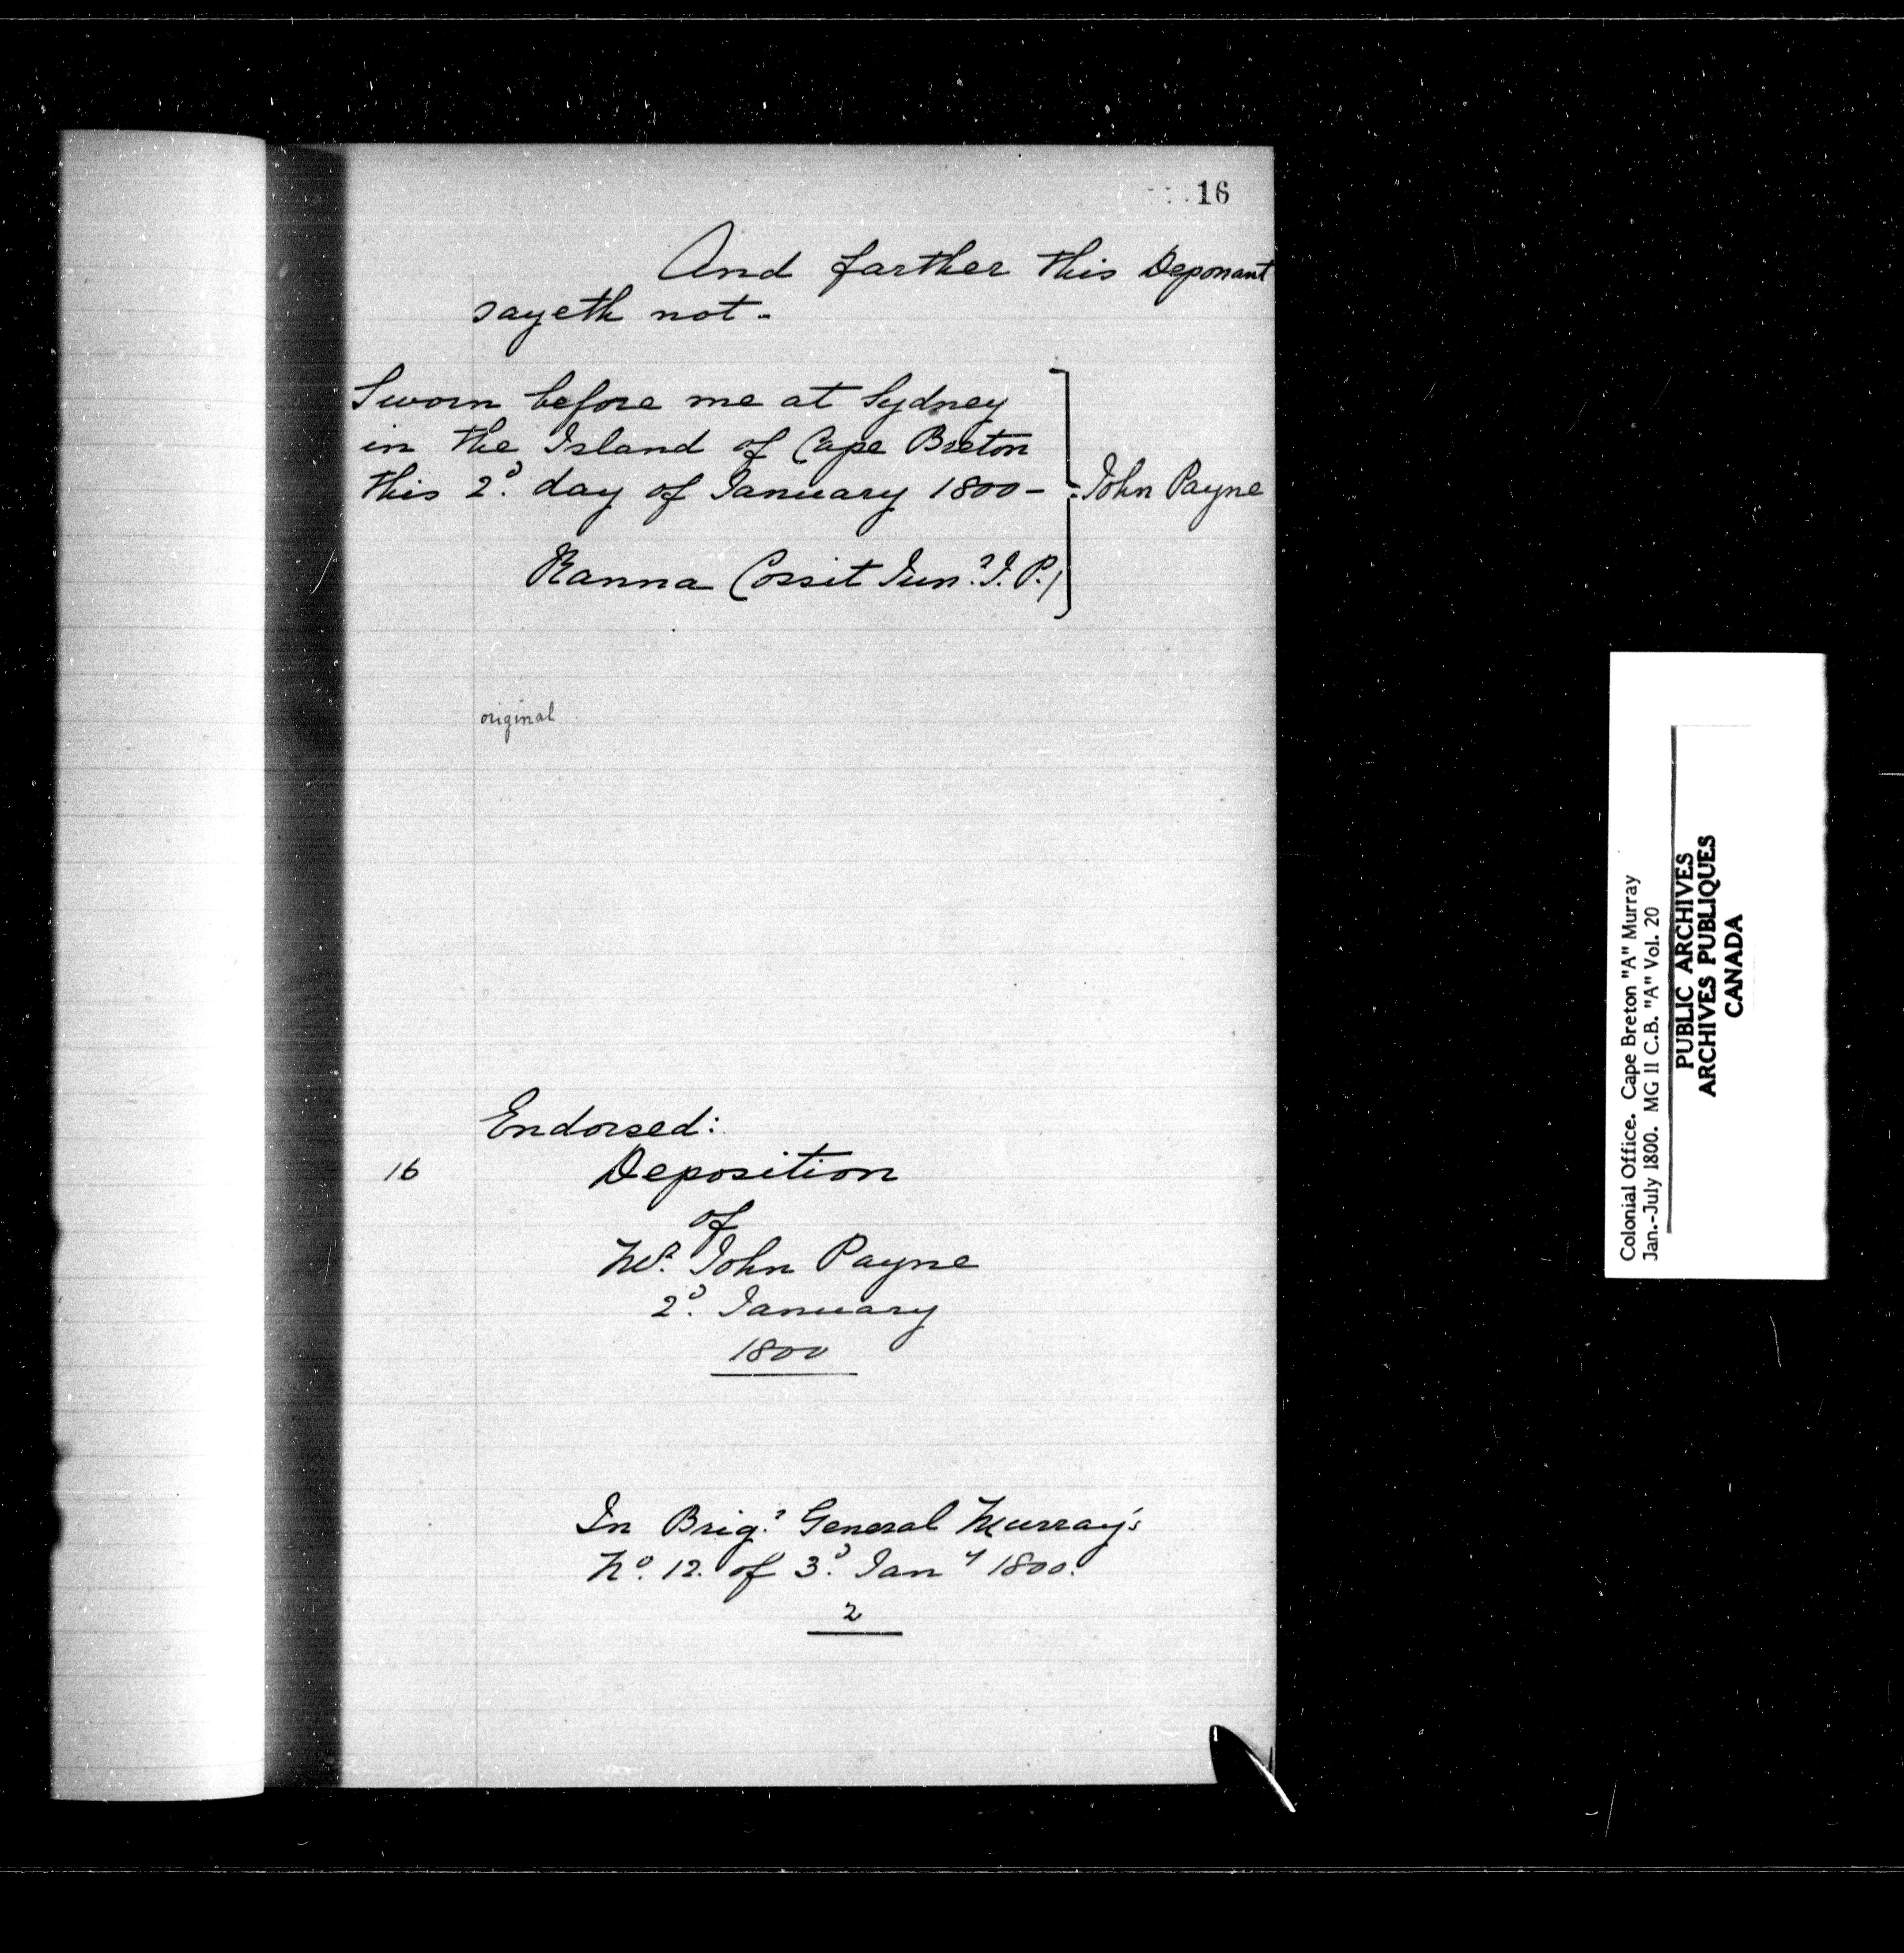 16
And farther this Deponant
sayeth not.
Sworn before me at Sydney
in the Island of Cape Breton
this 2ᵈ. day of January 1800 – John Payne
Ranna Cossit Junʳ. J. P./
original
Endorsed:
16 Deposition
of
Mʳ. John Payne
2ᵈ. January
1800
In Brigʳ. General Murray's
Nº. 12. of 3ᵈ. Janʸ 1800.
2
Colonial Office. Cape Breton "A" Murray
Jan.-July 1800. MG 11 C.B. "A" Vol. 20
PUBLIC ARCHIVES
ARCHIVES PUBLIQUES
CANADA